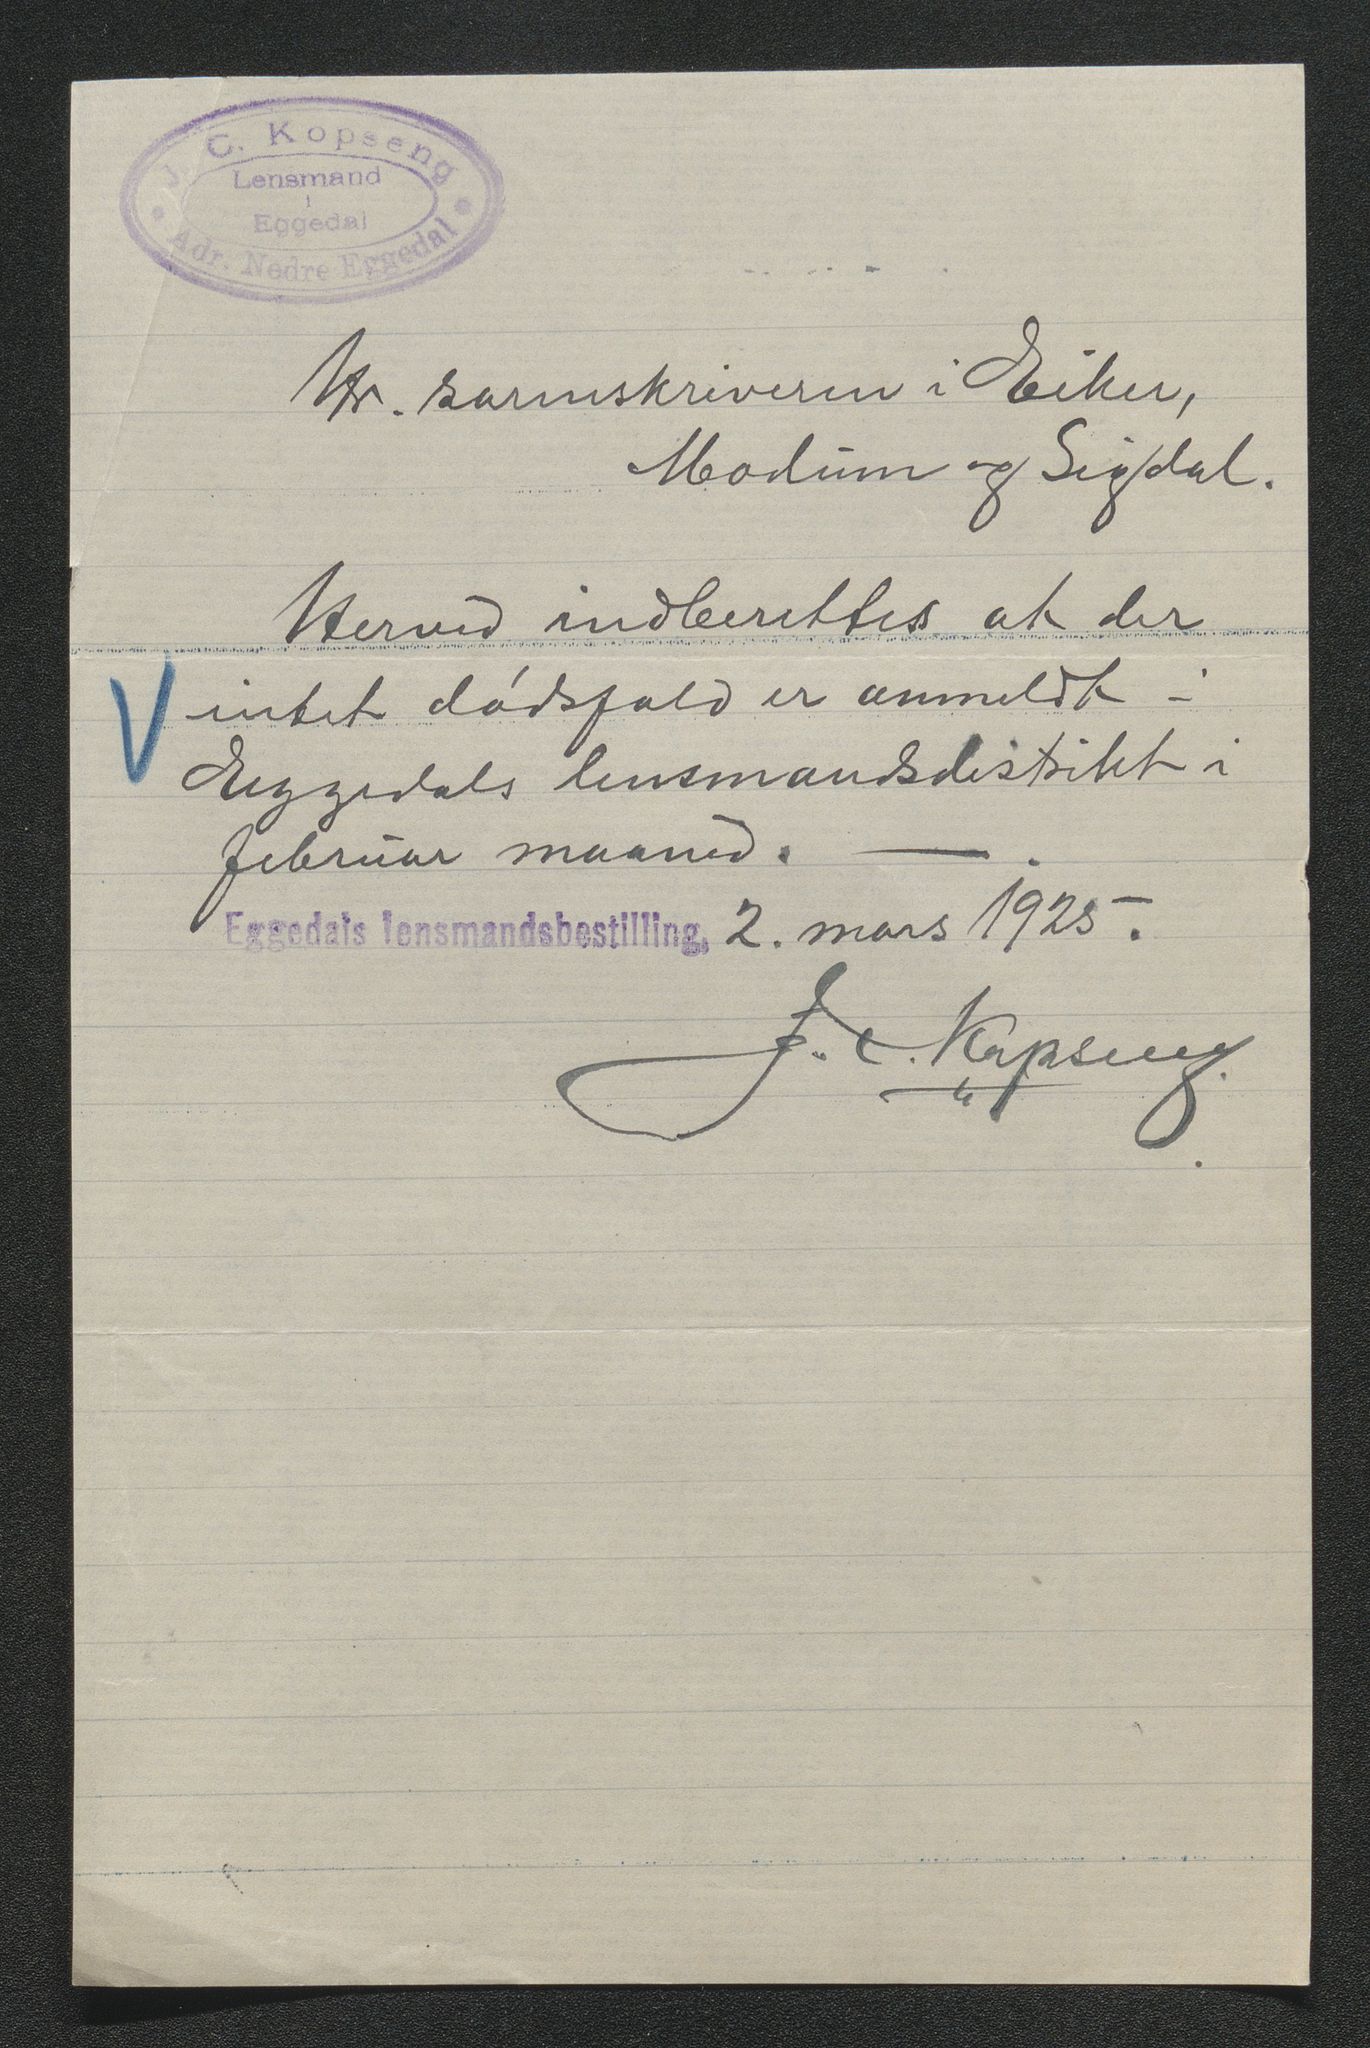 J. C. Kopseng
Lensmand
i
Eggedal
Adr. Nedre Eggedal
Hr. sorenskriveren i Eiker,
Modum og Sigdal.
Herved indberettes at der
V intet dødsfald er anmeldt i
Eggedals lensmandsdistrikt i
februar maaned. — .
Eggedals lensmandsbestilling, 2. mars 1925.
J. C. Kopseng.